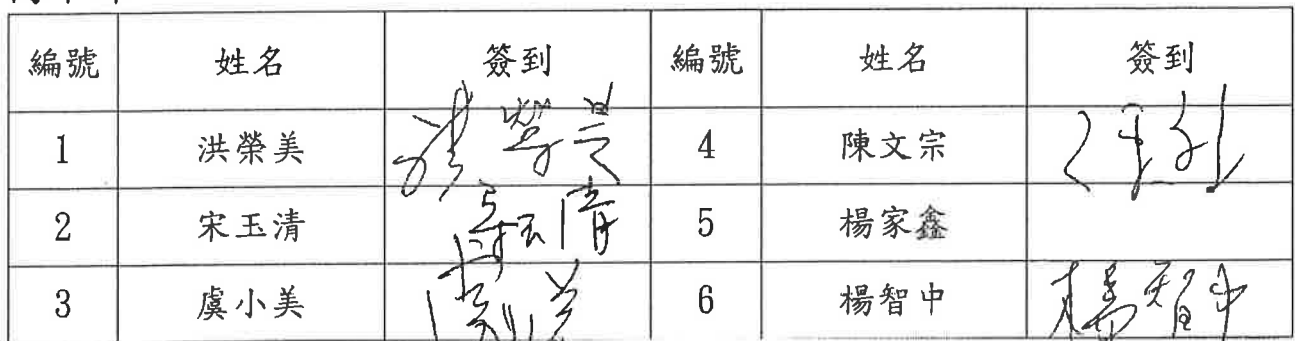 編號 姓名 簽到 編號 姓名 簽到
1 洪榮美 洪榮美 4 陳文宗
2 宋玉清 5 楊家鑫
3 虞小美 6 楊智中 楊智中